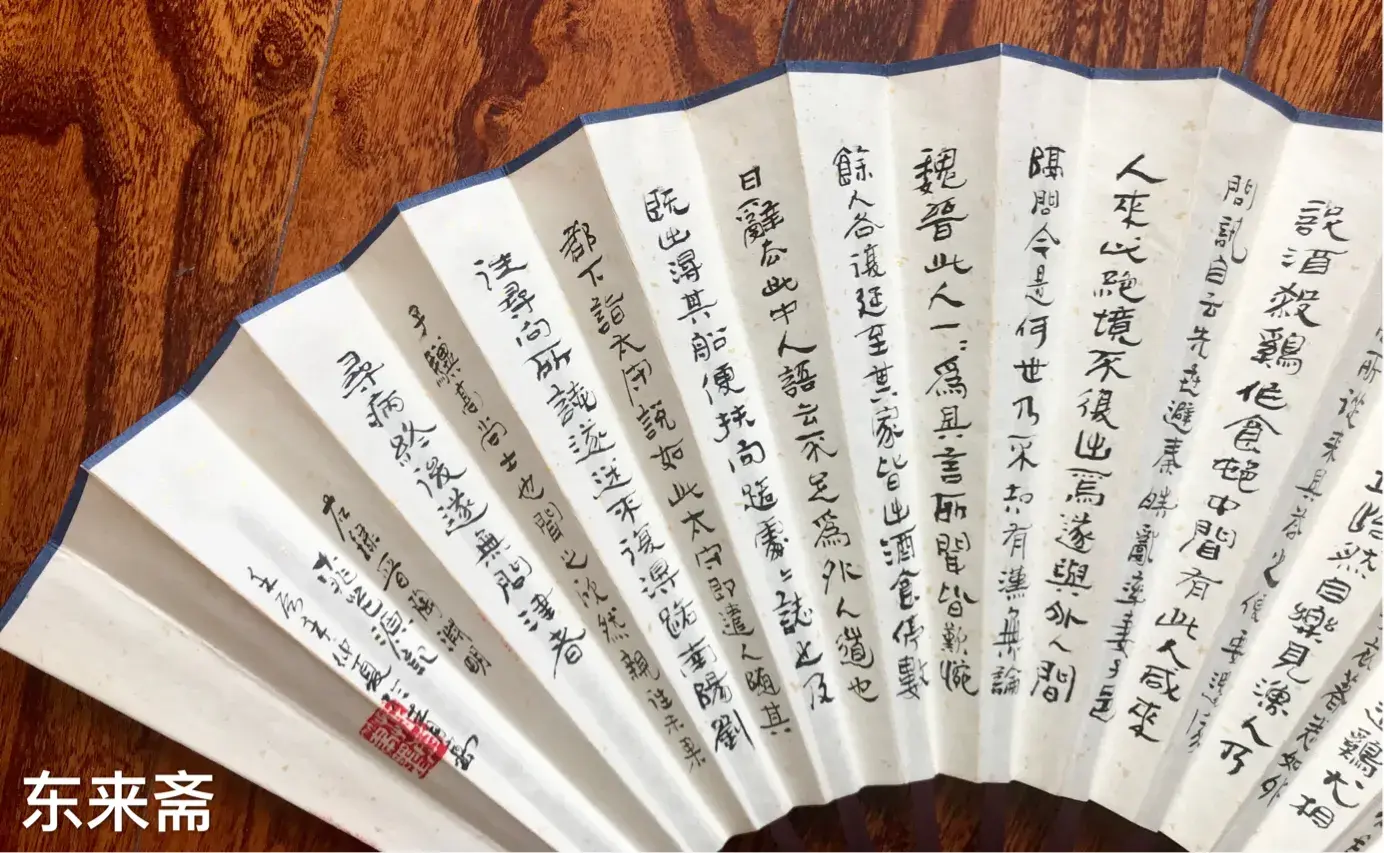 鷄犬相
衣著悉如外
怡然自樂見漁人乃
所從來具答之便要還家
設酒殺鷄作食邨中聞有此人咸來
問訊自云先世避秦時亂率妻子邑
人來此絕境不復出焉遂與外人間
隔問今是何世乃不知有漢無論
魏晉此人一〻為具言所聞皆歎惋
餘人各復延至其家皆出酒食停數
日辭去此中人語云不足為外人道也
既出得其船便扶向路處〻誌之及
都下詣太守說如此太守即遣人隨其
往尋向所誌遂迷不復得路南陽劉
子驥高尚士也聞之欣然親往未果
尋病終後遂無問津者
右録晉陶淵明
桃花源記
壬辰年仲夏
东来斋